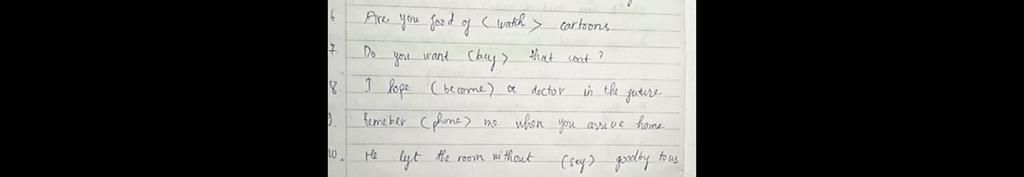 6 Are you food of (watch) cartoons
7. Do you want (buy) that coat?
8. I hope (become) a doctor in the future.
9. Remeber (phone) me when you arrive home.
10. He left the room without (say) goodby to us